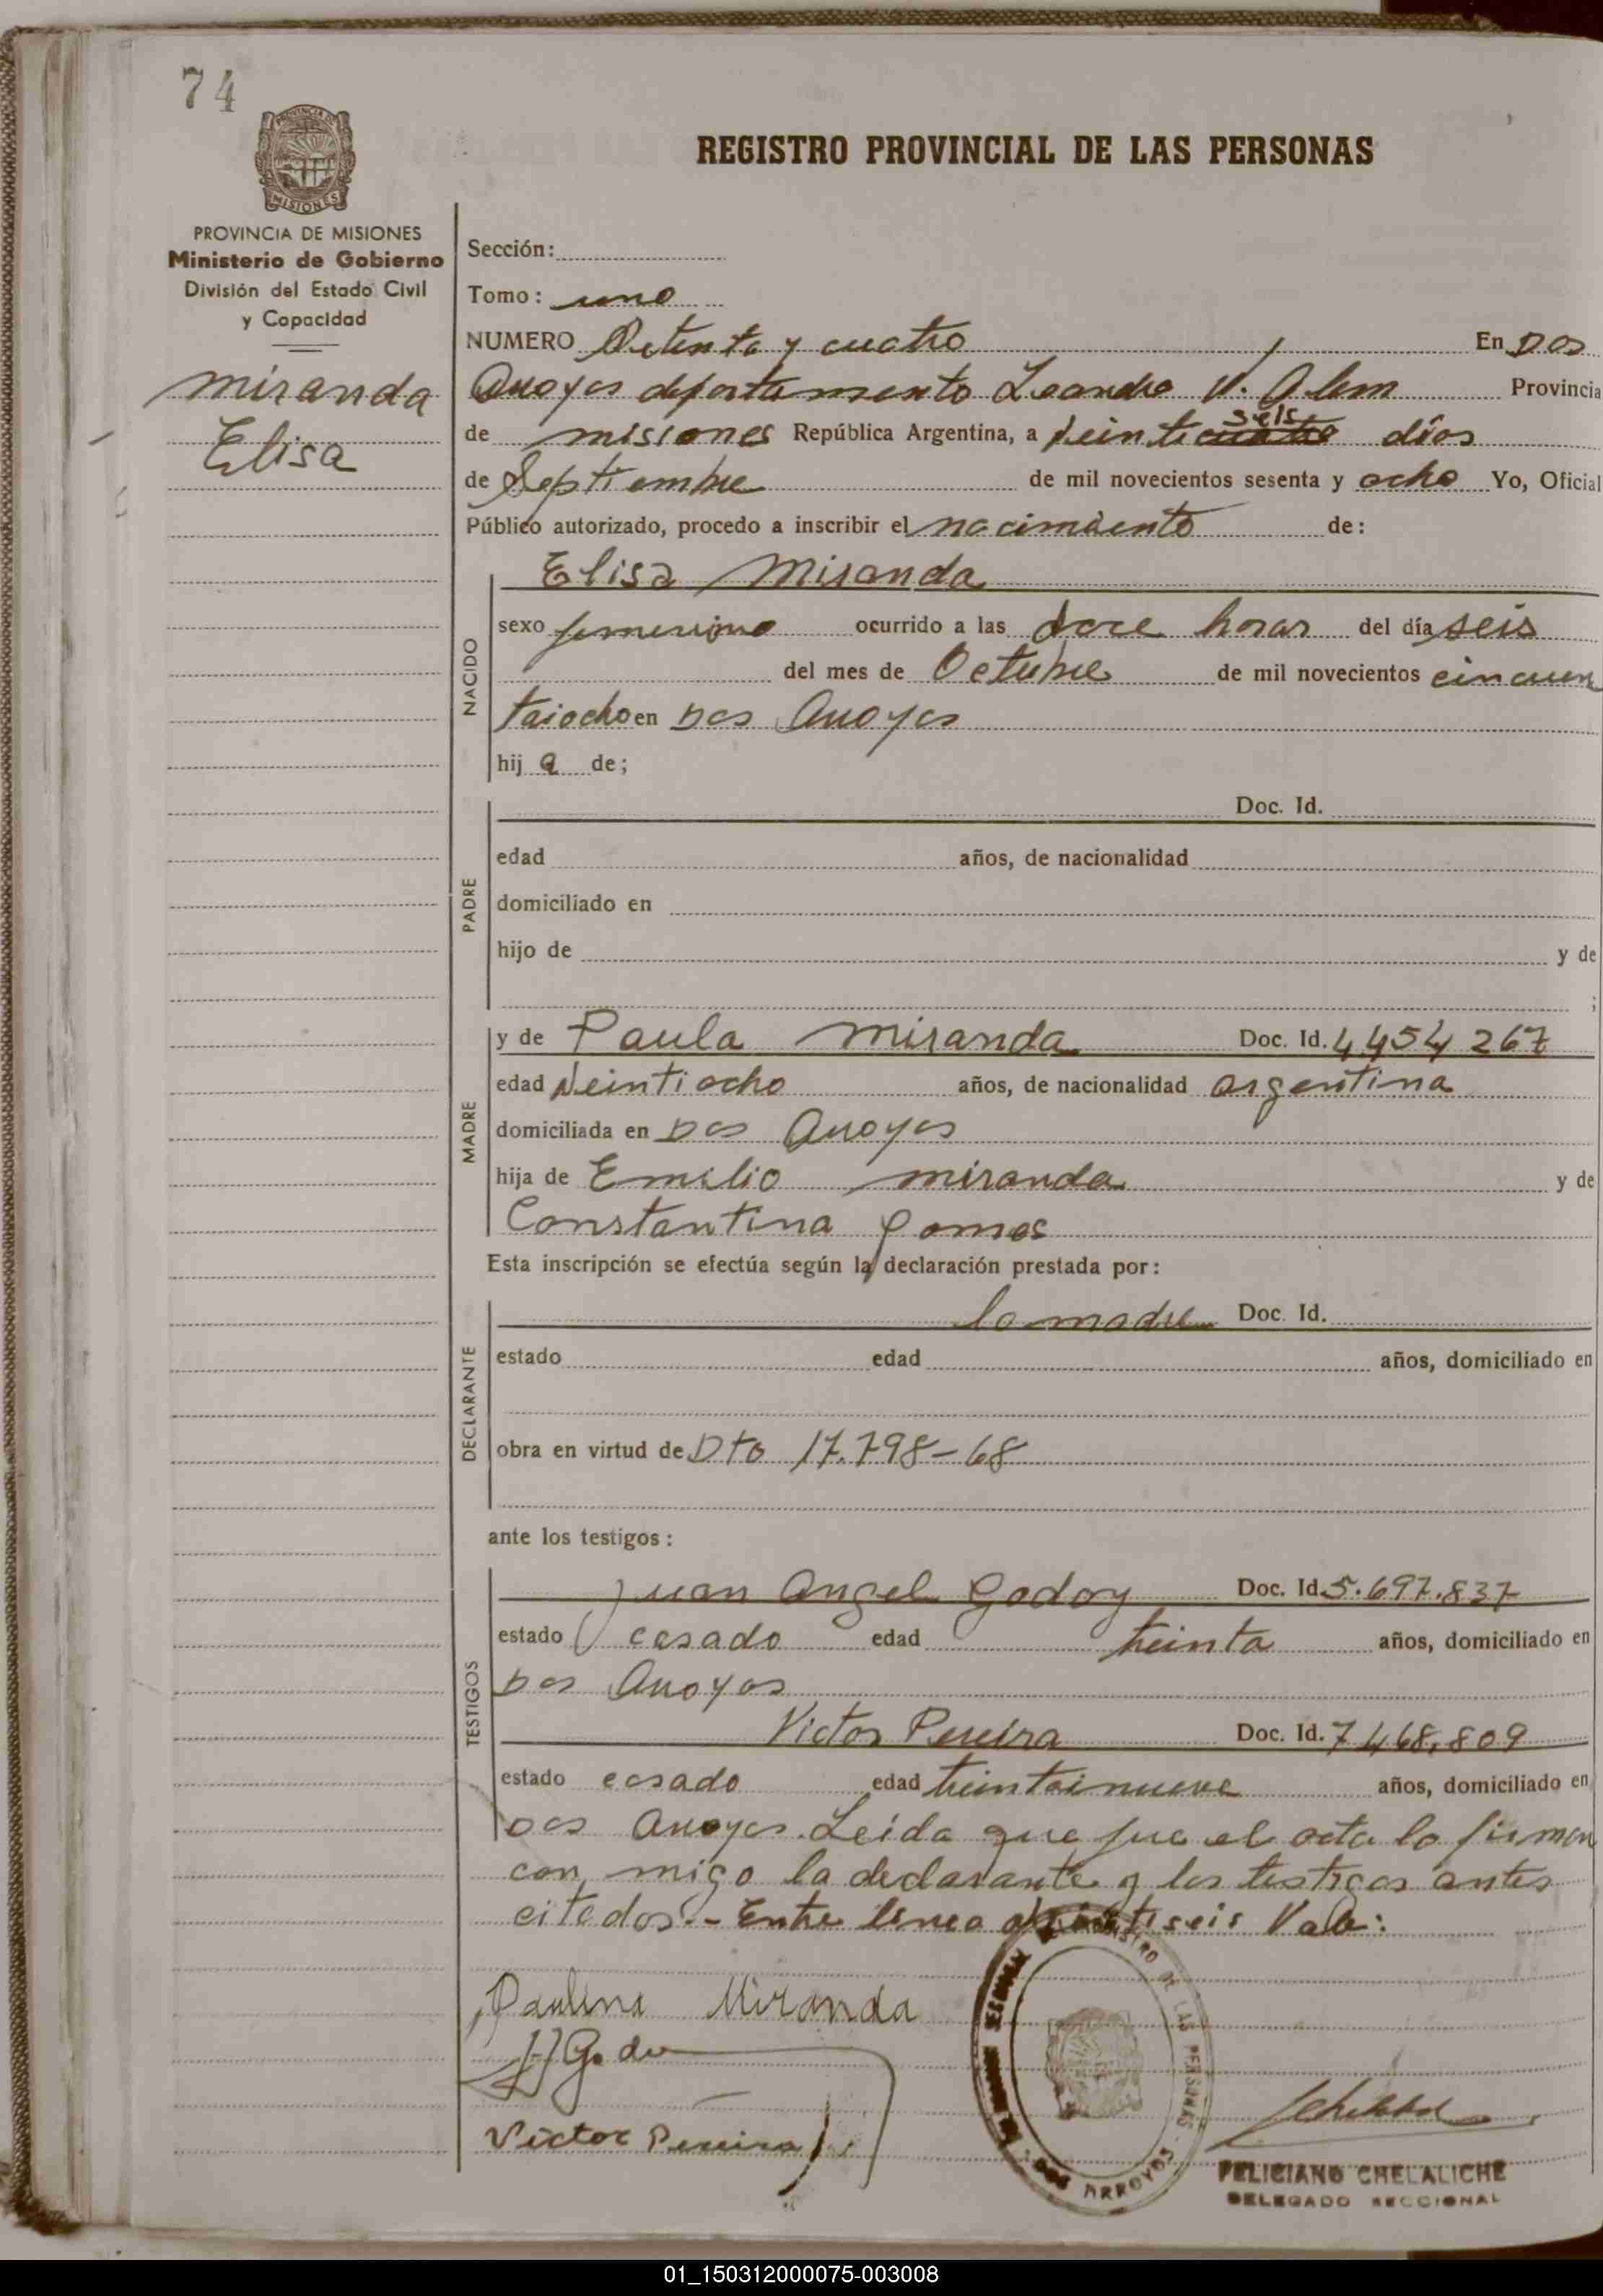 74
PROVINCIA DE
MISIONES
REGISTRO PROVINCIAL DE LAS PERSONAS
PROVINCIA DE MISIONES
Ministerio de Gobierno
División del Estado Civil
y Capacidad
miranda
Elisa
Sección:
Tomo: uno
NUMERO Setenta y cuatro En Dos
Arroyos departamento Leandro N. Alem Provincia
de misiones República Argentina, a veinticuatro seis días
de Septiembre de mil novecientos sesenta y ocho Yo, Oficial
Público autorizado, procedo a inscribir el nacimiento de:
NACIDO
Elisa Miranda
sexo femenino ocurrido a las doce horas del día seis
del mes de Octubre de mil novecientos cincuen
taiocho en Dos Arroyos
hij a de;
PADRE
Doc. Id.
edad años, de nacionalidad
domiciliado en
hijo de y de
;
MADRE
y de Paula Miranda Doc. Id. 4454267
edad veintiocho años, de nacionalidad argentina
domiciliada en Dos Arroyos
hija de Emilio miranda y de
Constantina gomes
Esta inscripción se efectúa según la declaración prestada por:
DECLARANTE
la madre Doc. Id.
estado edad años, domiciliado en
obra en virtud de Dto 17.798-68
ante los testigos:
TESTIGOS
Juan Angel Godoy Doc. Id. 5.697.837
estado casado edad treinta años, domiciliado en
Dos Arroyos
Victor Pereira Doc. Id. 7468.809
estado casado edad treintainueve años, domiciliado en
Dos Arroyos. Leida que fue el acta lo firman
con migo la declarante y los testigos antes
citados.- Entre linea veintiseis Vale:
Paulina Miranda
Victor Pereira
REGISTRO DE LAS PERSONAS
DOS ARROYOS
FELICIANO CHELALICHE
DELEGADO SECCIONAL
01_150312000075-003008